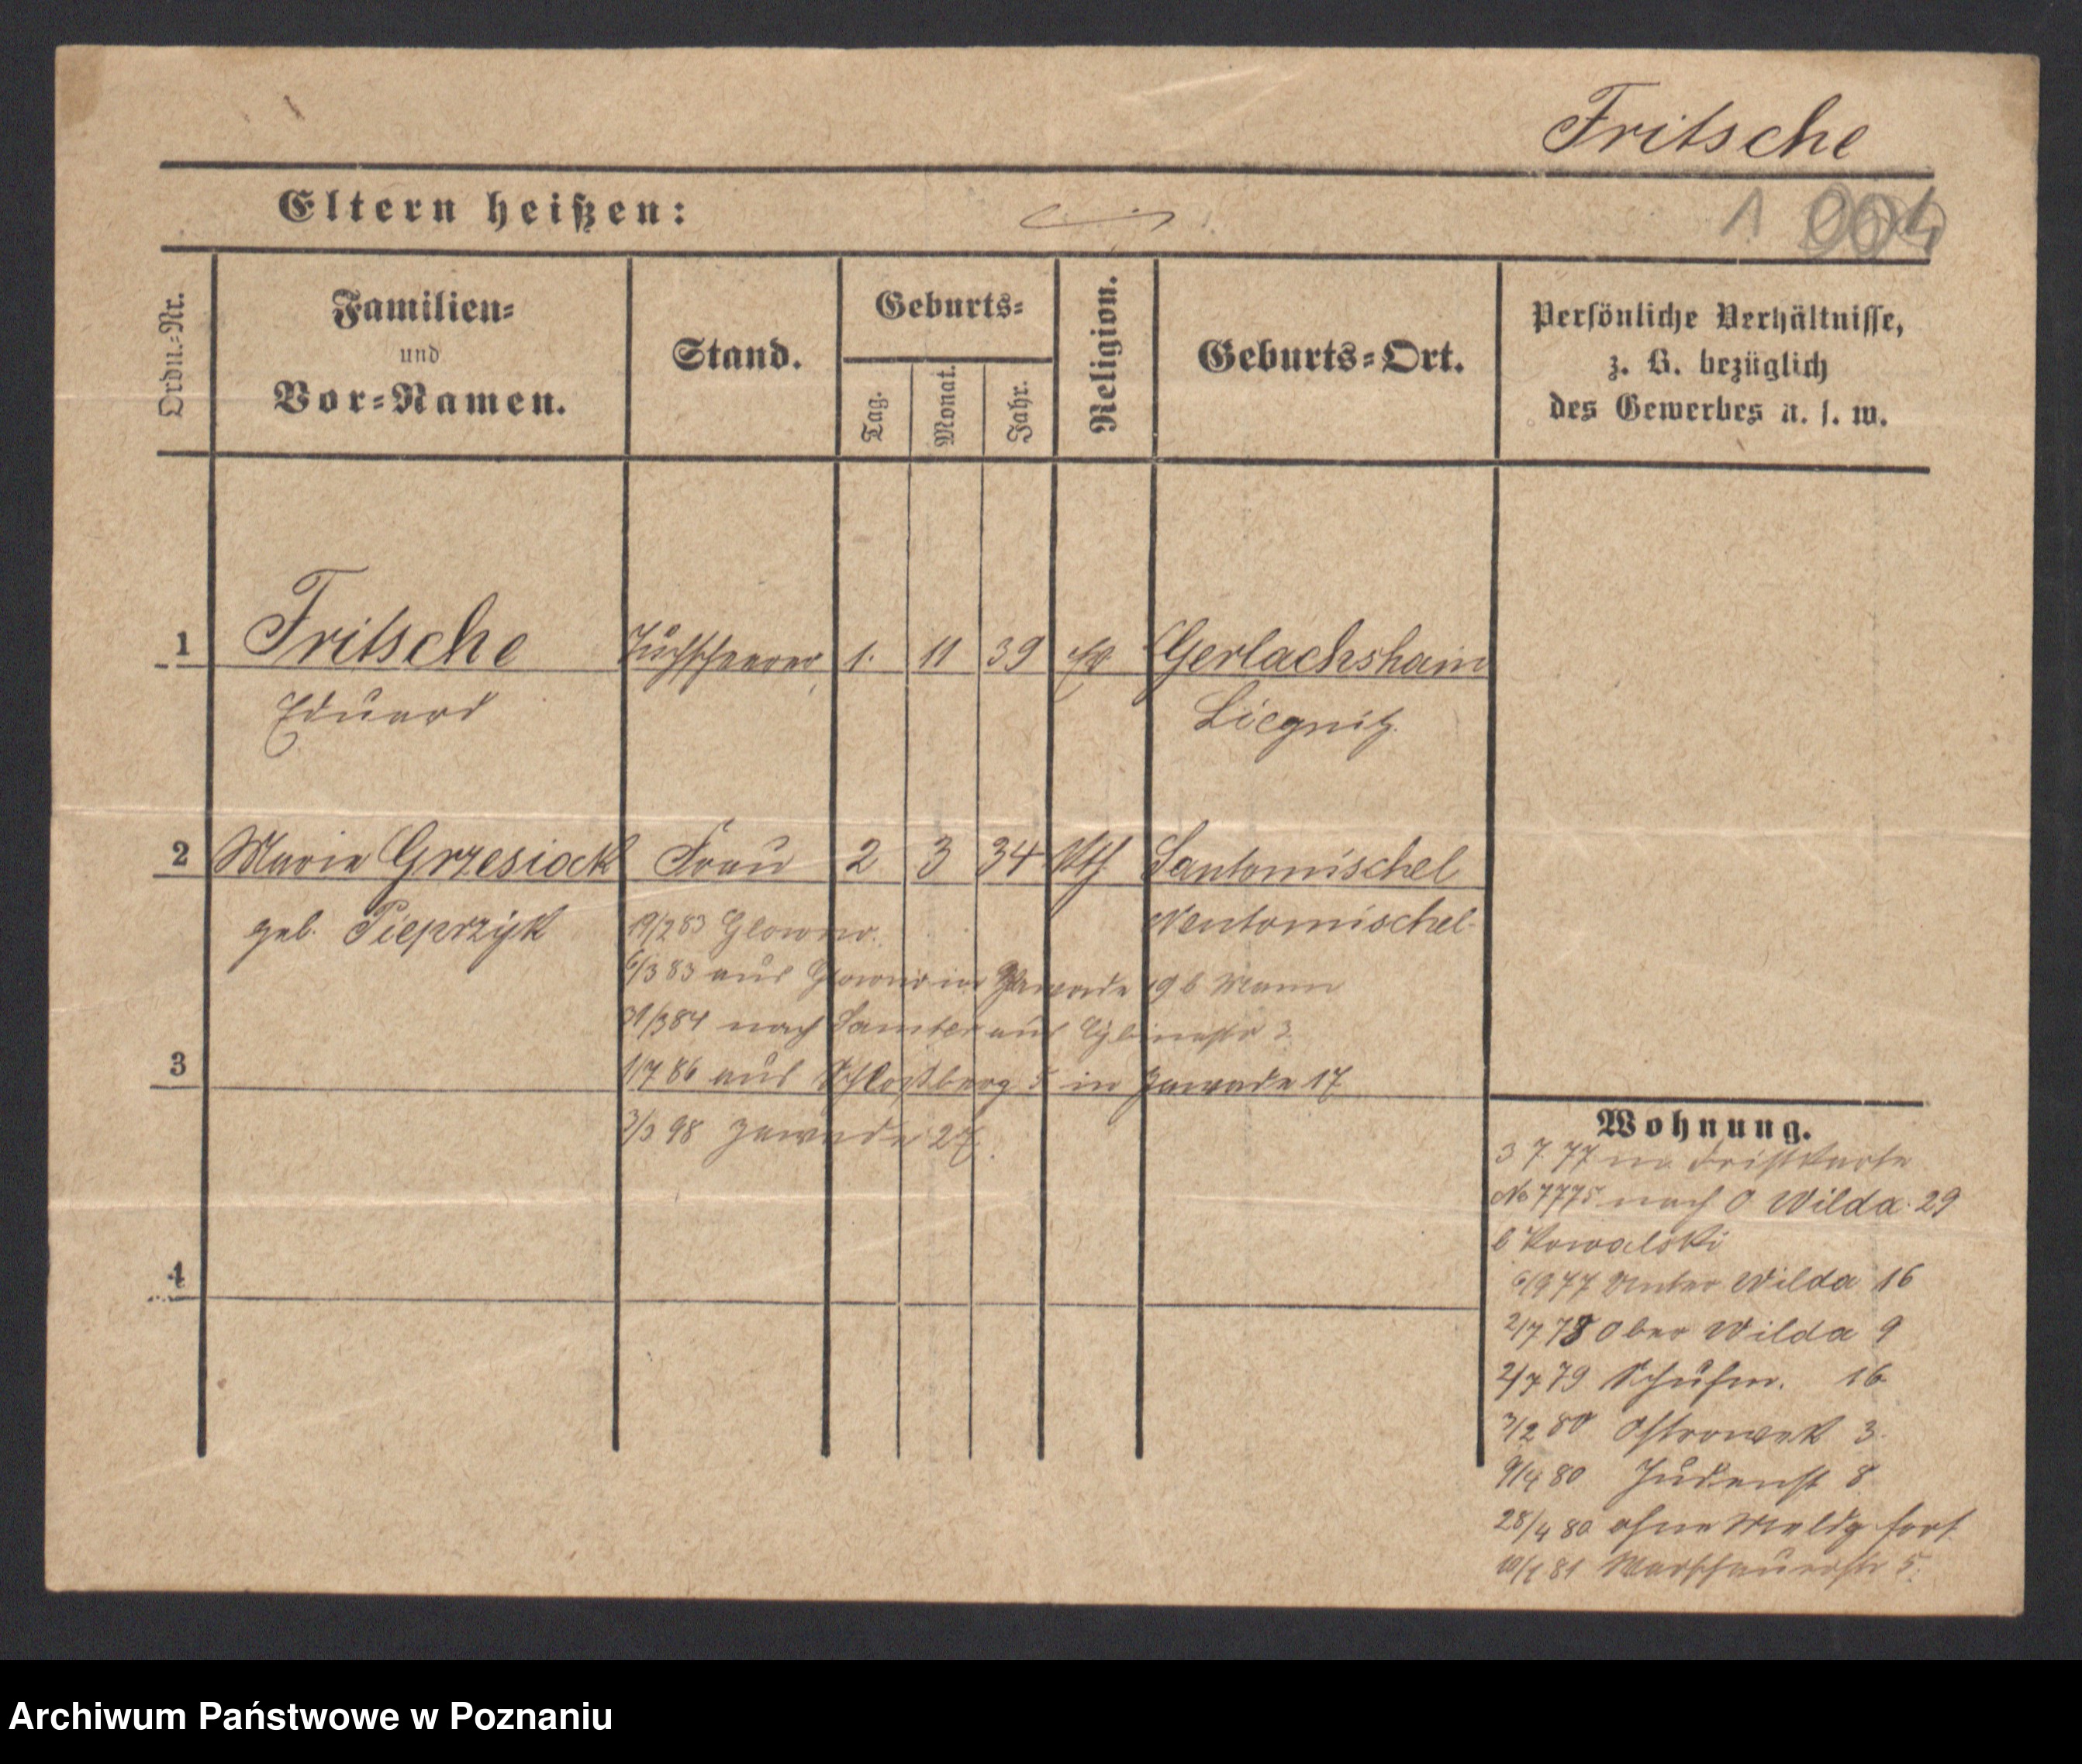 Fritsche
Eltern heißen:
1 004
Ordn.-Nr.
Familien-
und
Vor-Namen.
Stand.
Geburts-
Tag.
Monat.
Jahr.
Religion.
Geburts-Ort.
Persönliche Verhältnisse,
z. B. bezüglich
des Gewerbes u. s. w.
1 Fritsche Tuchscheerer 1. 11 39 ev Gerlachshain
Eduard Liegnitz.
2 Marie Grzesiack Frau 2 3 34 kth Santomischel
geb. Pieprzyk Neutomischel
19/2 83 Glowno.
6/3 83 aus Glowno in Zawade 19 b Mann
31/3 84 nach Samter aus Cybinastr 3
3 1/7 86 aus Schloßberg 5 in Zawade 17
3/3 98 Zawade 27.
4
Wohnung.
3 7. 77 m. Fristkarte
No 7775 nach O Wilda 29
b Kowalski
6/9 77 Unter Wilda 16
2/7 78 Ober Wilda 9
2/7 79 Schuhm. 16
3/2 80 Ostrowek 3.
9/4 80 Judenst 8
28/4 80 ohne Meldg fort
10/1 81 Warschauerstr 5.
Archiwum Państwowe w Poznaniu